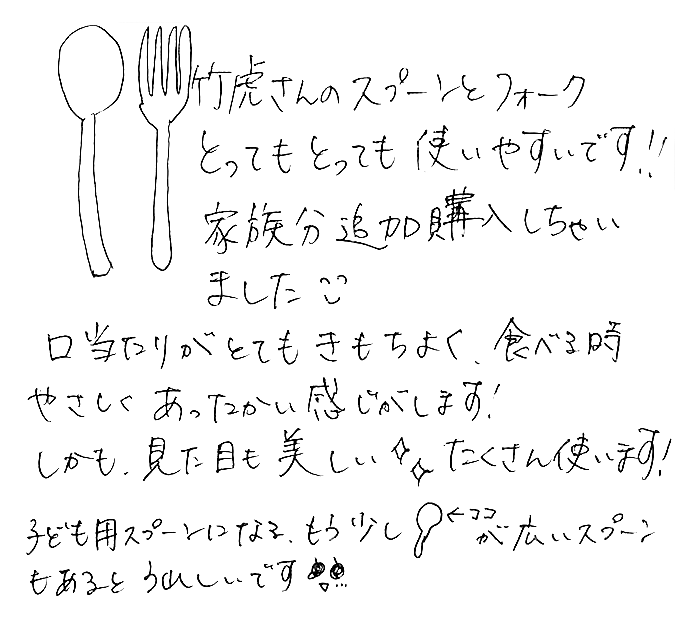 竹虎さんのスプーンとフォーク
とってもとっても使いやすいです!!
家族分追加購入しちゃい
ました
口当たりがとてもきもちよく、食べる時
やさしくあったかい感じがします!
しかも、見た目も美しい たくさん使います!
子ども用スプーンになる、もう少し ←ココが広いスプーン
もあるとうれしいです